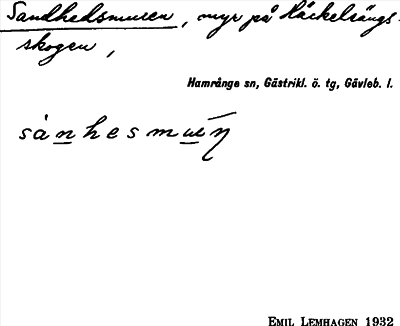 Sandhedsmuren, myr på Häckelsängs-
skogen,
Hamrånge sn, Gästrikl. ö. tg, Gävleb. l.
EMIL LEMHAGEN 1932